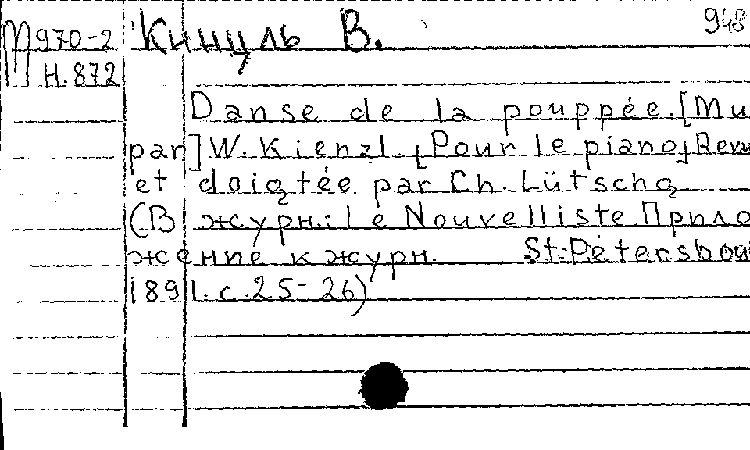 948
М970-2 Кинцль В.
Н.872
Danse de la pouppée.[Mu
par] W. Kienzl. [Pour le piano] Rev
et doigtée par Ch. Lütschg
(В журн.: Le Nouvelliste Прило
жение к журн. St.-Pétersbou
1891. с.25-26)